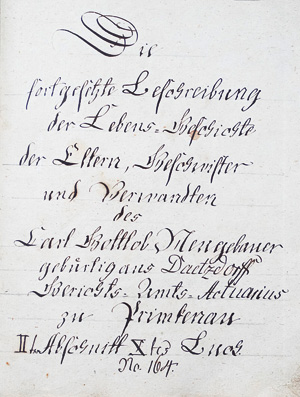 Die
fortgesetzte Beschreibung
der Lebens-Geschichte
der Eltern, Geschwister
und Verwandten
des
Carl Gottlob Neugebauer
gebürtig aus Daetzdorff
Gerichts-Amts-Actuarius
zu Primkenau
IIter Abschnitt Xtes Buch
No 164.